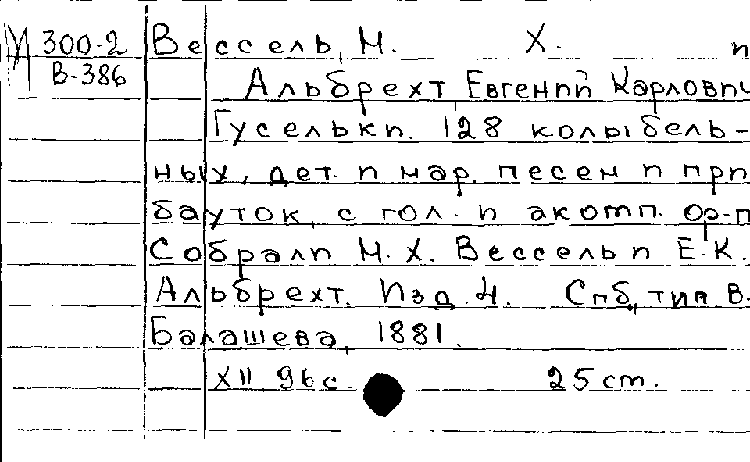 У 300-2
В-386
Вессель, М. Х. и
Альбрехт Евгений Карлович
Гусельки. 128 колыбель-
ных, дет. и нар. песен и при
бауток, с гол. и акомп. ф-п
Собрали М. Х. Вессель и Е. К.
Альбрехт. Изд. 4. Спб, тип В.
Балашева, 1881.
XII 96 с. 25 cm.